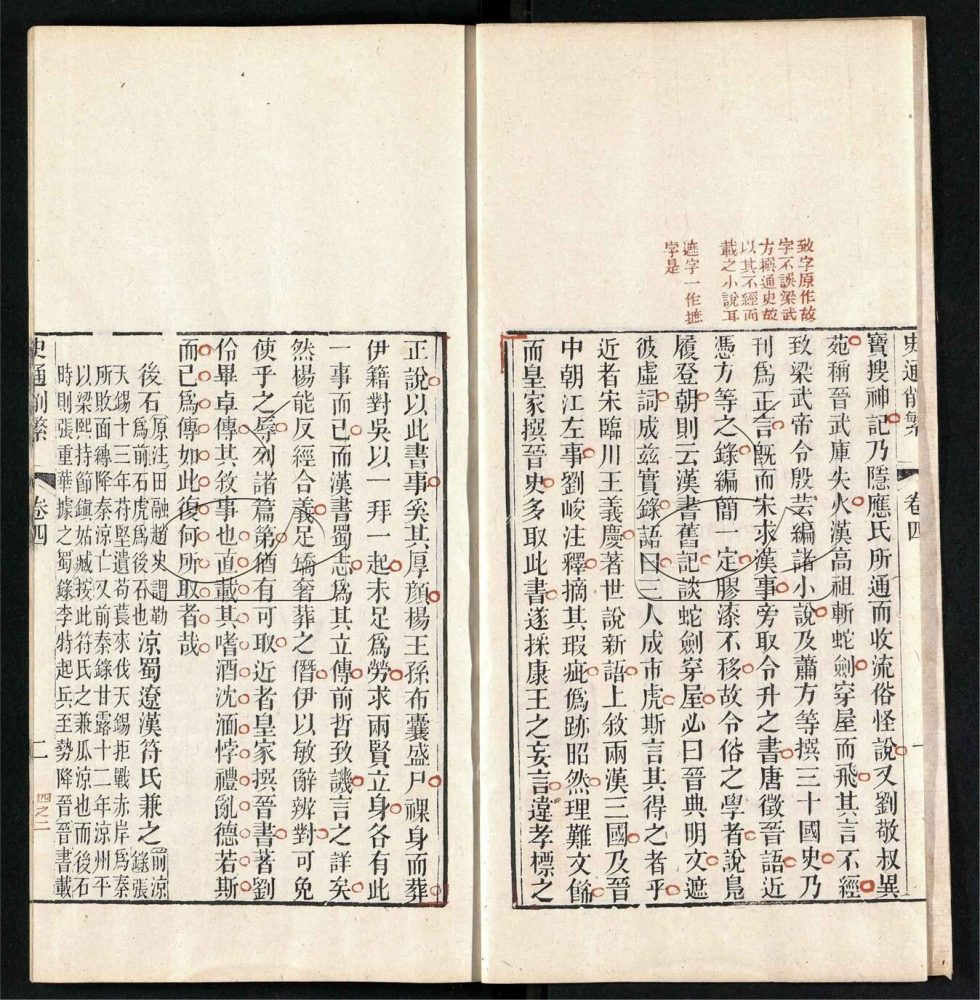 致字原作故
字不誤梁武
方撰通史故
以其不經而
載之小說耳
遮字一作摭
字是
史通削繁
卷四
一
寶搜神記乃隱應氏所通而收流俗怪說又劉敬叔異
苑稱晉武庫失火漢高祖斬蛇劍穿屋而飛其言不經
致梁武帝令殷芸編諸小說及蕭方等撰三十國史乃
刊爲正言旣而宋求漢事旁取令升之書唐徵晉語近
憑方等之錄編簡一定膠漆不移故令俗之學者說鳧
履登朝則云漢書舊記談蛇劍穿屋必曰晉典明文遮
彼虛詞成茲實錄語曰三人成市虎斯言其得之者乎
近者宋臨川王義慶著世說新語上敘兩漢三國及晉
中朝江左事劉峻注釋摘其瑕疵僞跡昭然理難文飾
而皇家撰晉史多取此書遂採康王之妄言違孝標之
正說以此書事奚其厚顏楊王孫布囊盛尸裸身而葬
伊籍對吳以一拜一起未足爲勞求兩賢立身各有此
一事而已而漢書蜀志爲其立傳前哲致譏言之詳矣
然楊能反經合義足矯奢葬之僭伊以敏辭辨對可免
使乎之辱列諸篇第猶有可取近者皇家撰晉書著劉
伶畢卓傳其敘事也直載其嗜酒沈湎悖禮亂德若斯
而已爲傳如此復何所取者哉
後石原注田融趙史謂勒
爲前石虎爲後石也涼蜀遼漢苻氏兼之前涼
錄張
天錫十三年苻堅遺苟萇來伐天錫拒戰赤岸爲秦
所敗面縛降秦涼亡又前秦錄甘露十二年涼州平
以梁熙持節鎮姑臧按此苻氏之兼瓜涼也而後石
時則張重華據之蜀錄李特起兵至勢降晉晉書載
史通削繁
卷四
二
四之二